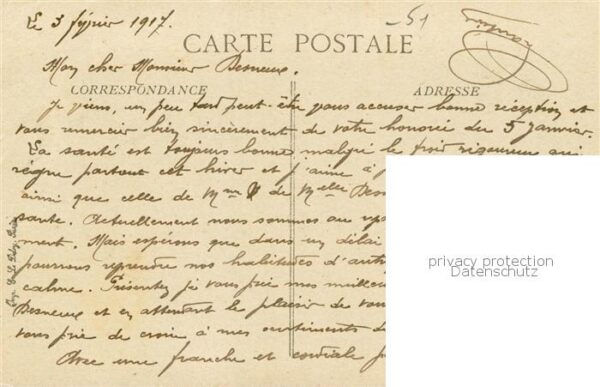 Le 3 février 1917.
51
CARTE POSTALE
Mon cher Monsieur Besneux.
CORRESPONDANCE
ADRESSE
Je viens, un peu tard peut-être vous accuser bonne réception et
vous remercier bien sincèrement de votre honorée du 5 Janvier.
La santé est toujours bonne malgré le froid rigoureux qui
règne partout cet hiver et j'aime à
ainsi que celle de Mme & de Melle
santé. Actuellement nous sommes au
ment. Mais espérons que dans un délai
pourrons reprendre nos habitudes
calme. Présentez je vous prie mes
Besneux et en attendant le plaisir de
vous prie de croire à mes sentiments
Avec une franche et cordiale
privacy protection
Datenschutz